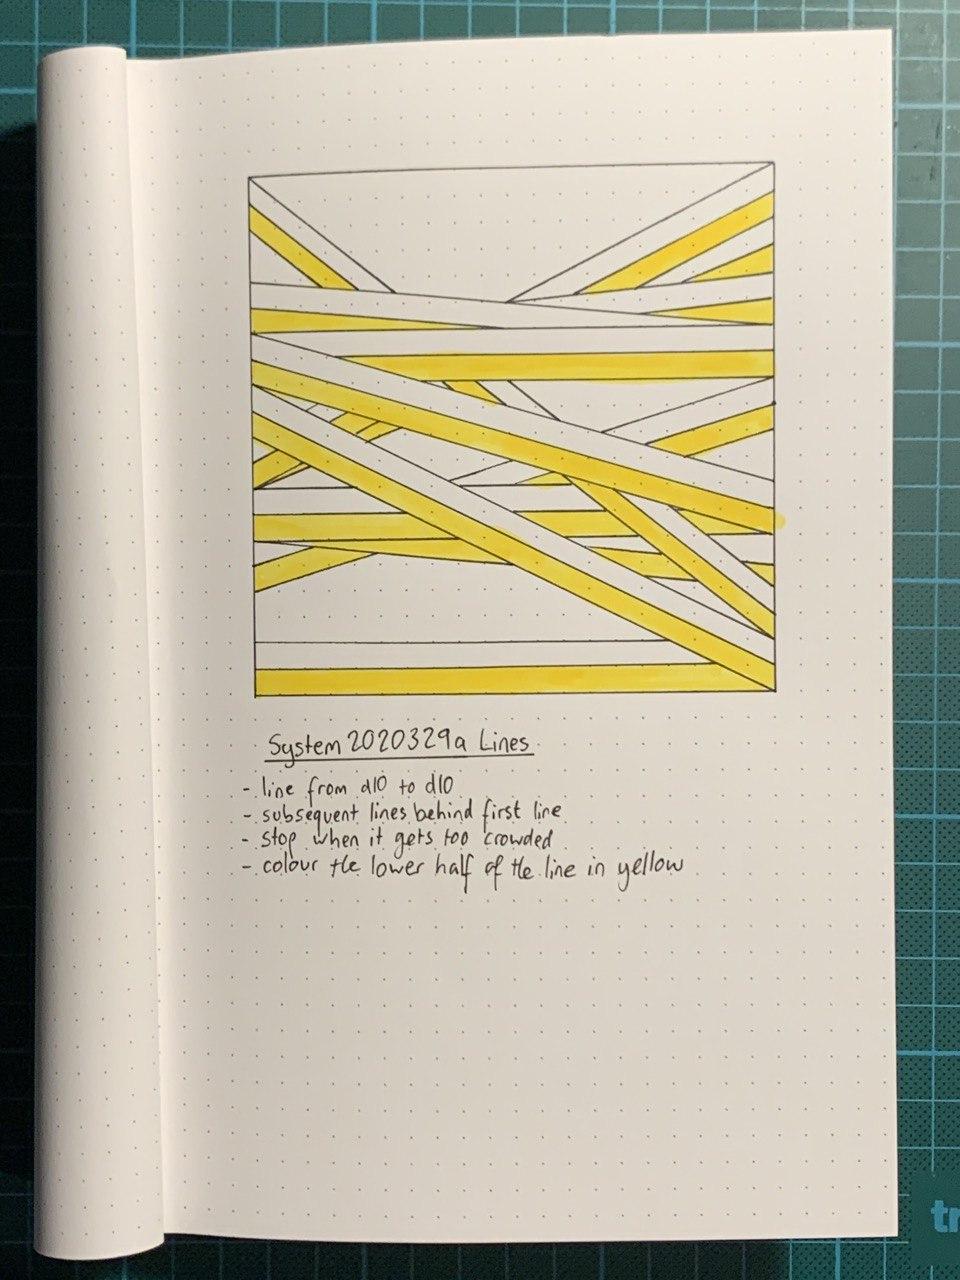 System 2020329a Lines
- line from d10 to d10
- subsequent lines behind first line
- stop when it gets too crowded
- colour the lower half of the line in yellow
tr